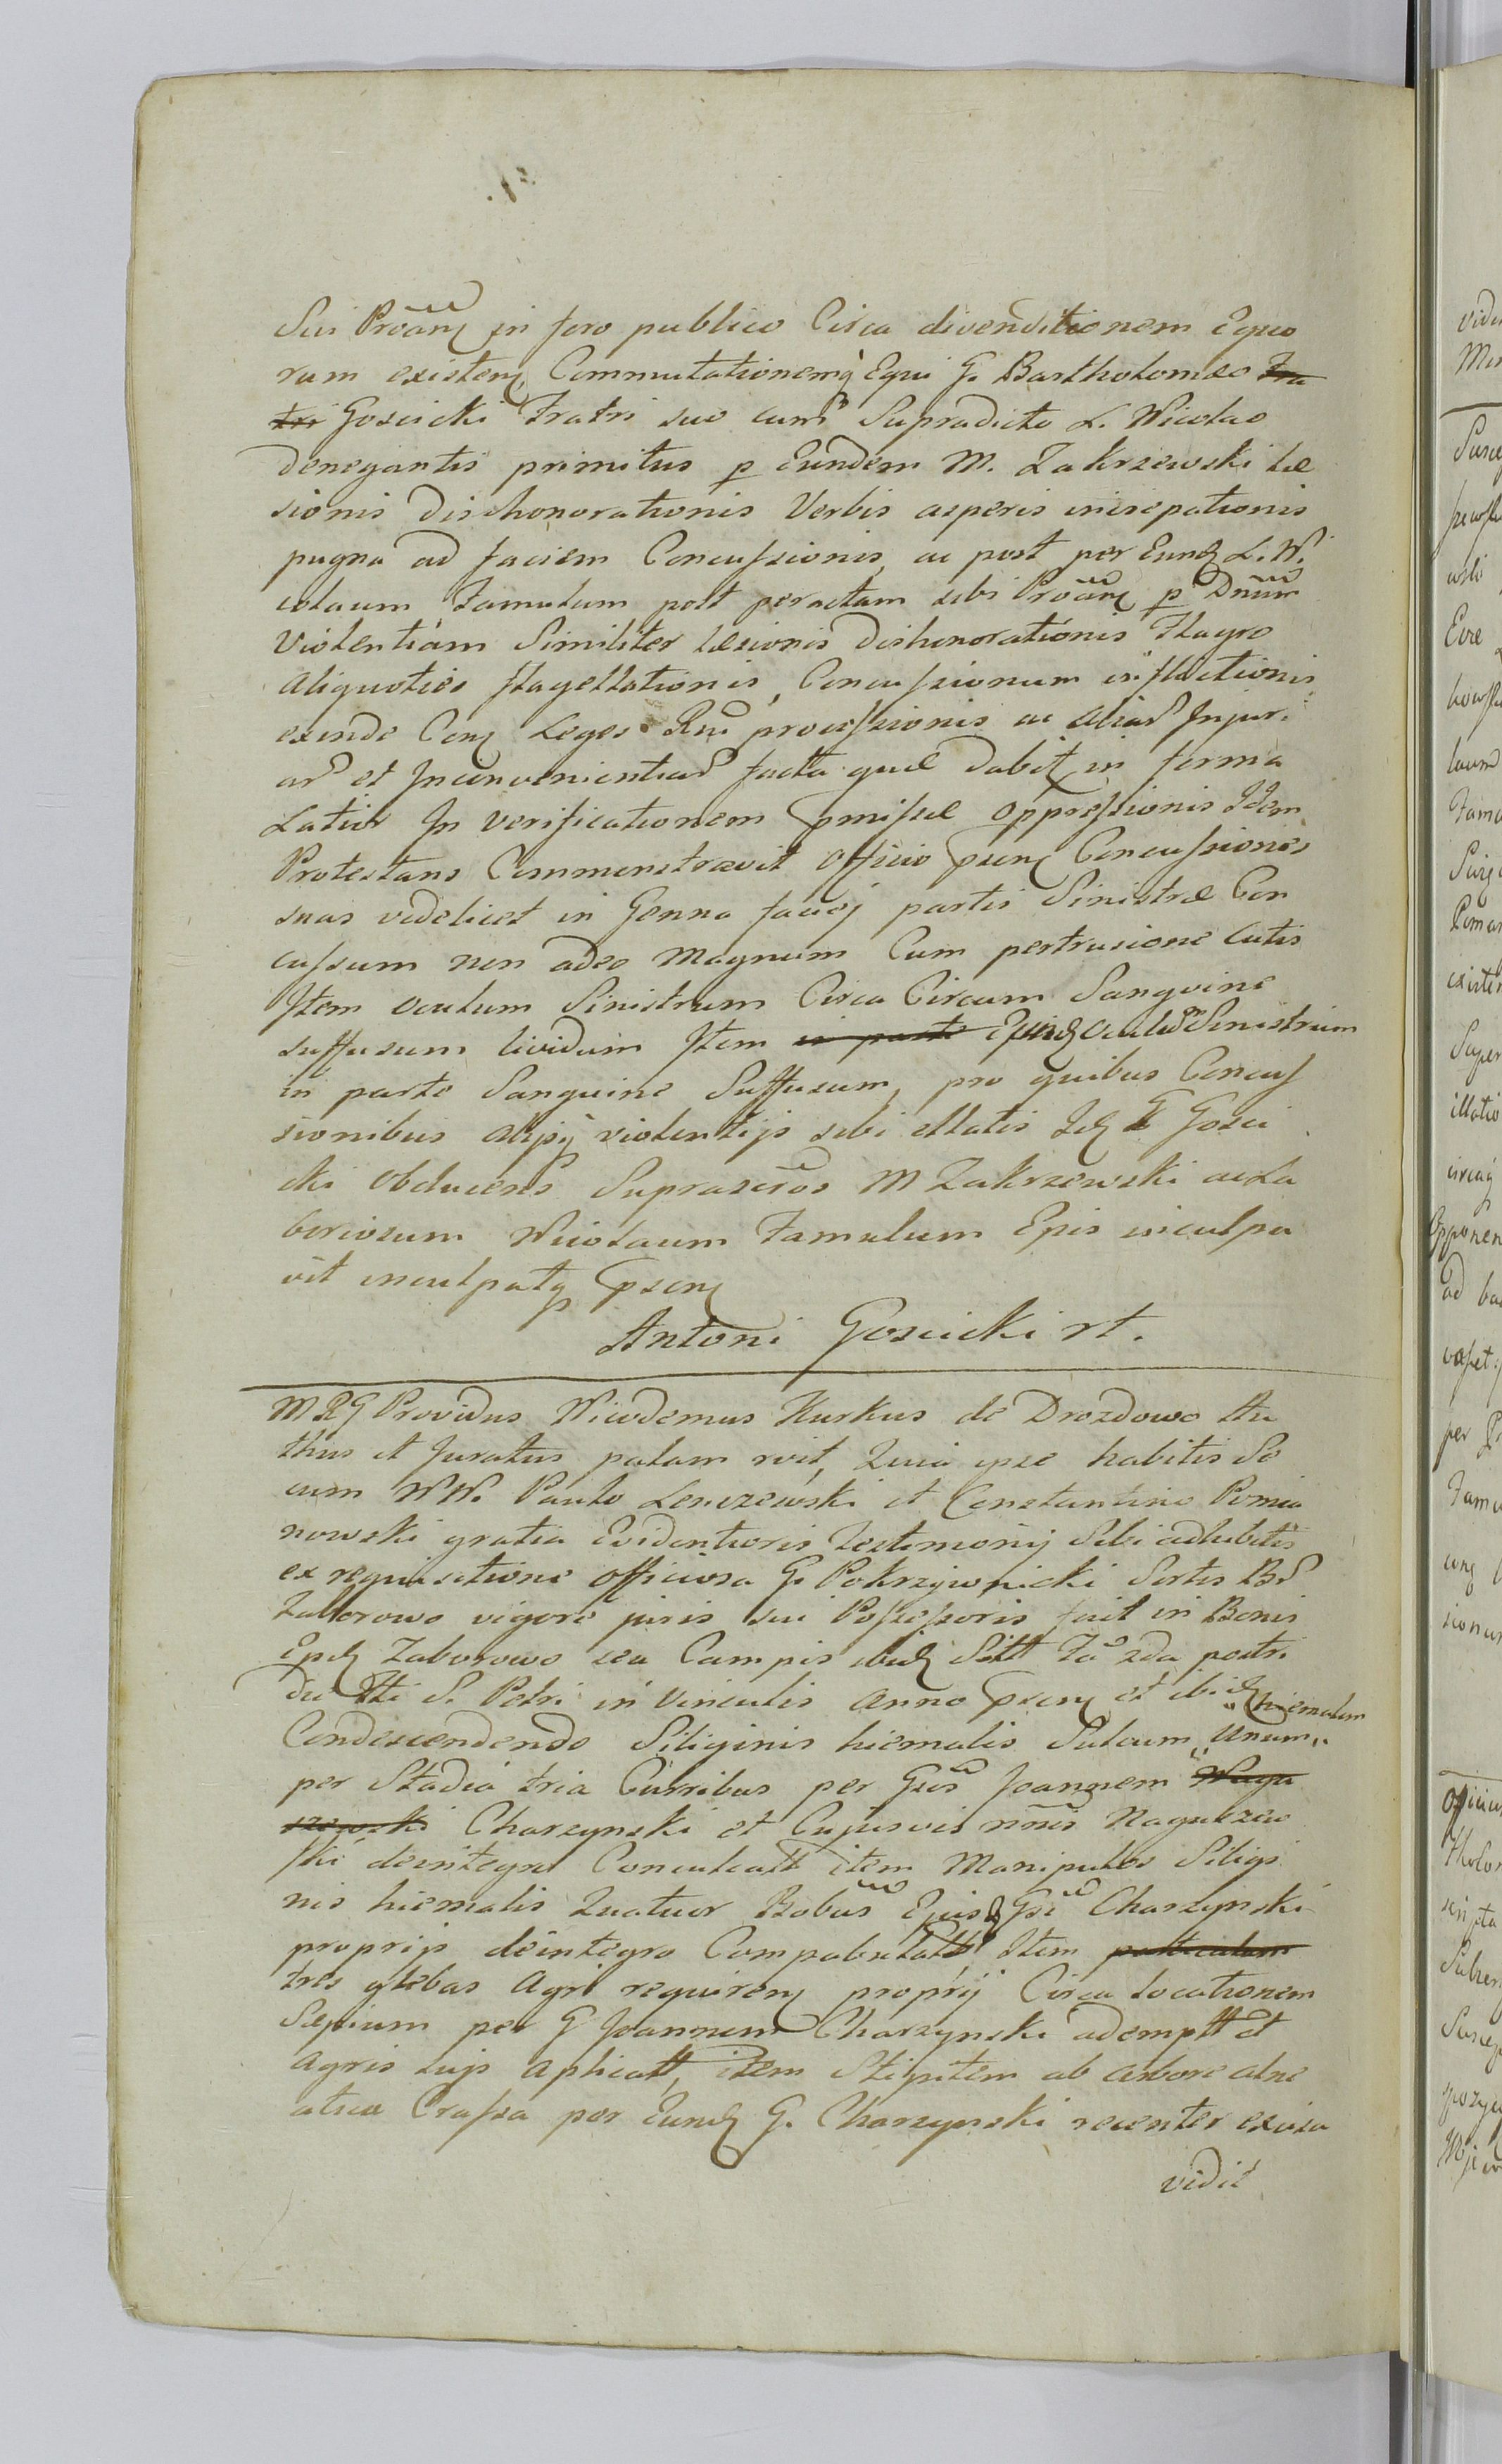 Sui Prõãnȩ in foro publico Circa divenditionem Equo
rum existenȩ, Commutationemq̀ Equi G. Bartholomæo Fra
tri Goscicki Fratri suo cum Supradicto L. Nicolao
denegantis primitus p Eundem M. Zakrzewski læ
sionis dischonorationis Verbis asperis increpationis
pugna ad faciem Concussionis, ac post per Eundȩ L. Ni
colaum Famulum post peractam sibi Prõãnȩ p Dnũm
Violentiam Similiter læsionis dishonorationis Flagro
aliquoties flagellationis, Concussionum inflictionis
exinde Conȩ Leges Rni processionis ac aliar Injuri
ar et Inconvenientiar facta quæ dabit in forma
Latior In verificationem pmissæ oppressionis Idem
Protestans Commonstravit officio psenȩ Concussiones
suas videlicet in Genna faciej partis Sinistræ Con
cussum non adeo Magnum Cum pertrusione Cutis
Item oculum Sinistrum Circa Circum Sangvine
suffusum lividum Item in parte Ejundȩ oculum Sinistrum
in parte Sanguine Suffusum, pro quibus Concus
sionibus alijsq̀ violentijs sibi illatis Idȩ G Gosci
cki Obducens Suprascr̃os M Zakrzewski ac La
boriosum Nicolaum Famulum Ejus inculpa
vit inculpatqȝ psenȩ
Antoni Goscicki rt.
M R G Providus Nicodemus Kurkus de Drozdowo Au
thus et Juratus palam rvit, Quia ipse habitis Se
cum NN. Paulo Lenczewski et Constantino Pomia
nowski gratia Evidentioris Testimonij Sibi adhibitis
ex requisitione officiosa G. Pokrzywnicki Sortis BS
Zaborowo vigore juris sui Possessoris fuit in Bonis
Ejsdȩ Zaborowo seu Campis ibidȩ Sitt Fã 2da postri
die Fti S. Petri in Vinculis anno psenȩ et ibidȩ
Condescendendo Siliginis hiemalis Sulcum „Unum„ hiemalem
per Stadia tria Curribus per Gsũ Joannem Nagu
szewski Charzynski et Cujusvis nñis Naguszew
ski deintegra Conculcatt item Manipulos Siligi
nis hiemalis Quatuor Bobus Ejusdȩ Gsi Charzynski
proprijs deintegro Compabulatt, Item particulam
tres glebas Agri requirenȩ proprij Circa locationem
Sæpium per G Joannem Charzynski adempt̃t et
Agris suis aplicatt, item Stipitem ab arbore alne
atica Crassa per Eundȩ G. Charzynski recenter excisa
vidit